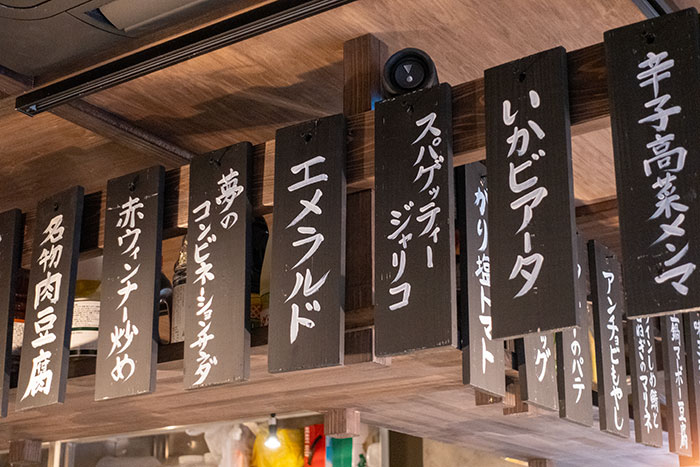 名物肉豆腐
赤ウィンナー炒め
夢の
コンビネーションサンダ
エメラルド
スパゲッティー
ジャリコ
がり塩トマト
いかビアータ
のパテ
アンチョビもやし
ねぎのマリネ
マーボー豆腐
辛子高菜メンマ